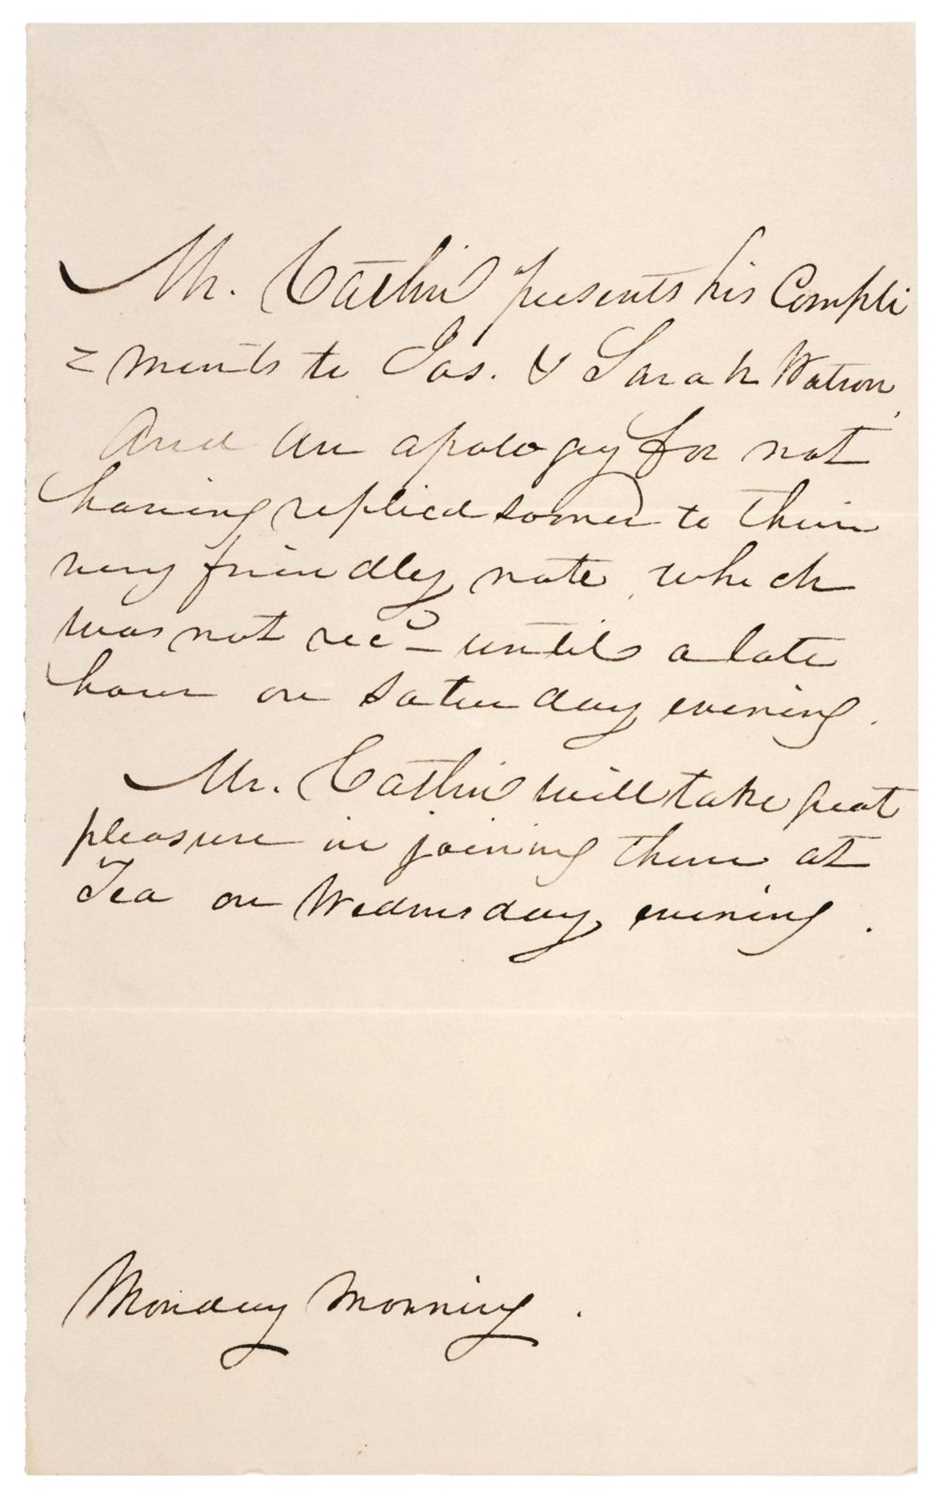 Mr. Catlin presents his Compli
= ments to Jas. & Sarah Watson,
And an apology for not
having replied sooner to their
very friendly note, which
was not recd- until a late
hour on Saturday evening.
Mr. Catlin will take great
pleasure in joining them at
Tea on Wednesday evening.
Monday Morning.